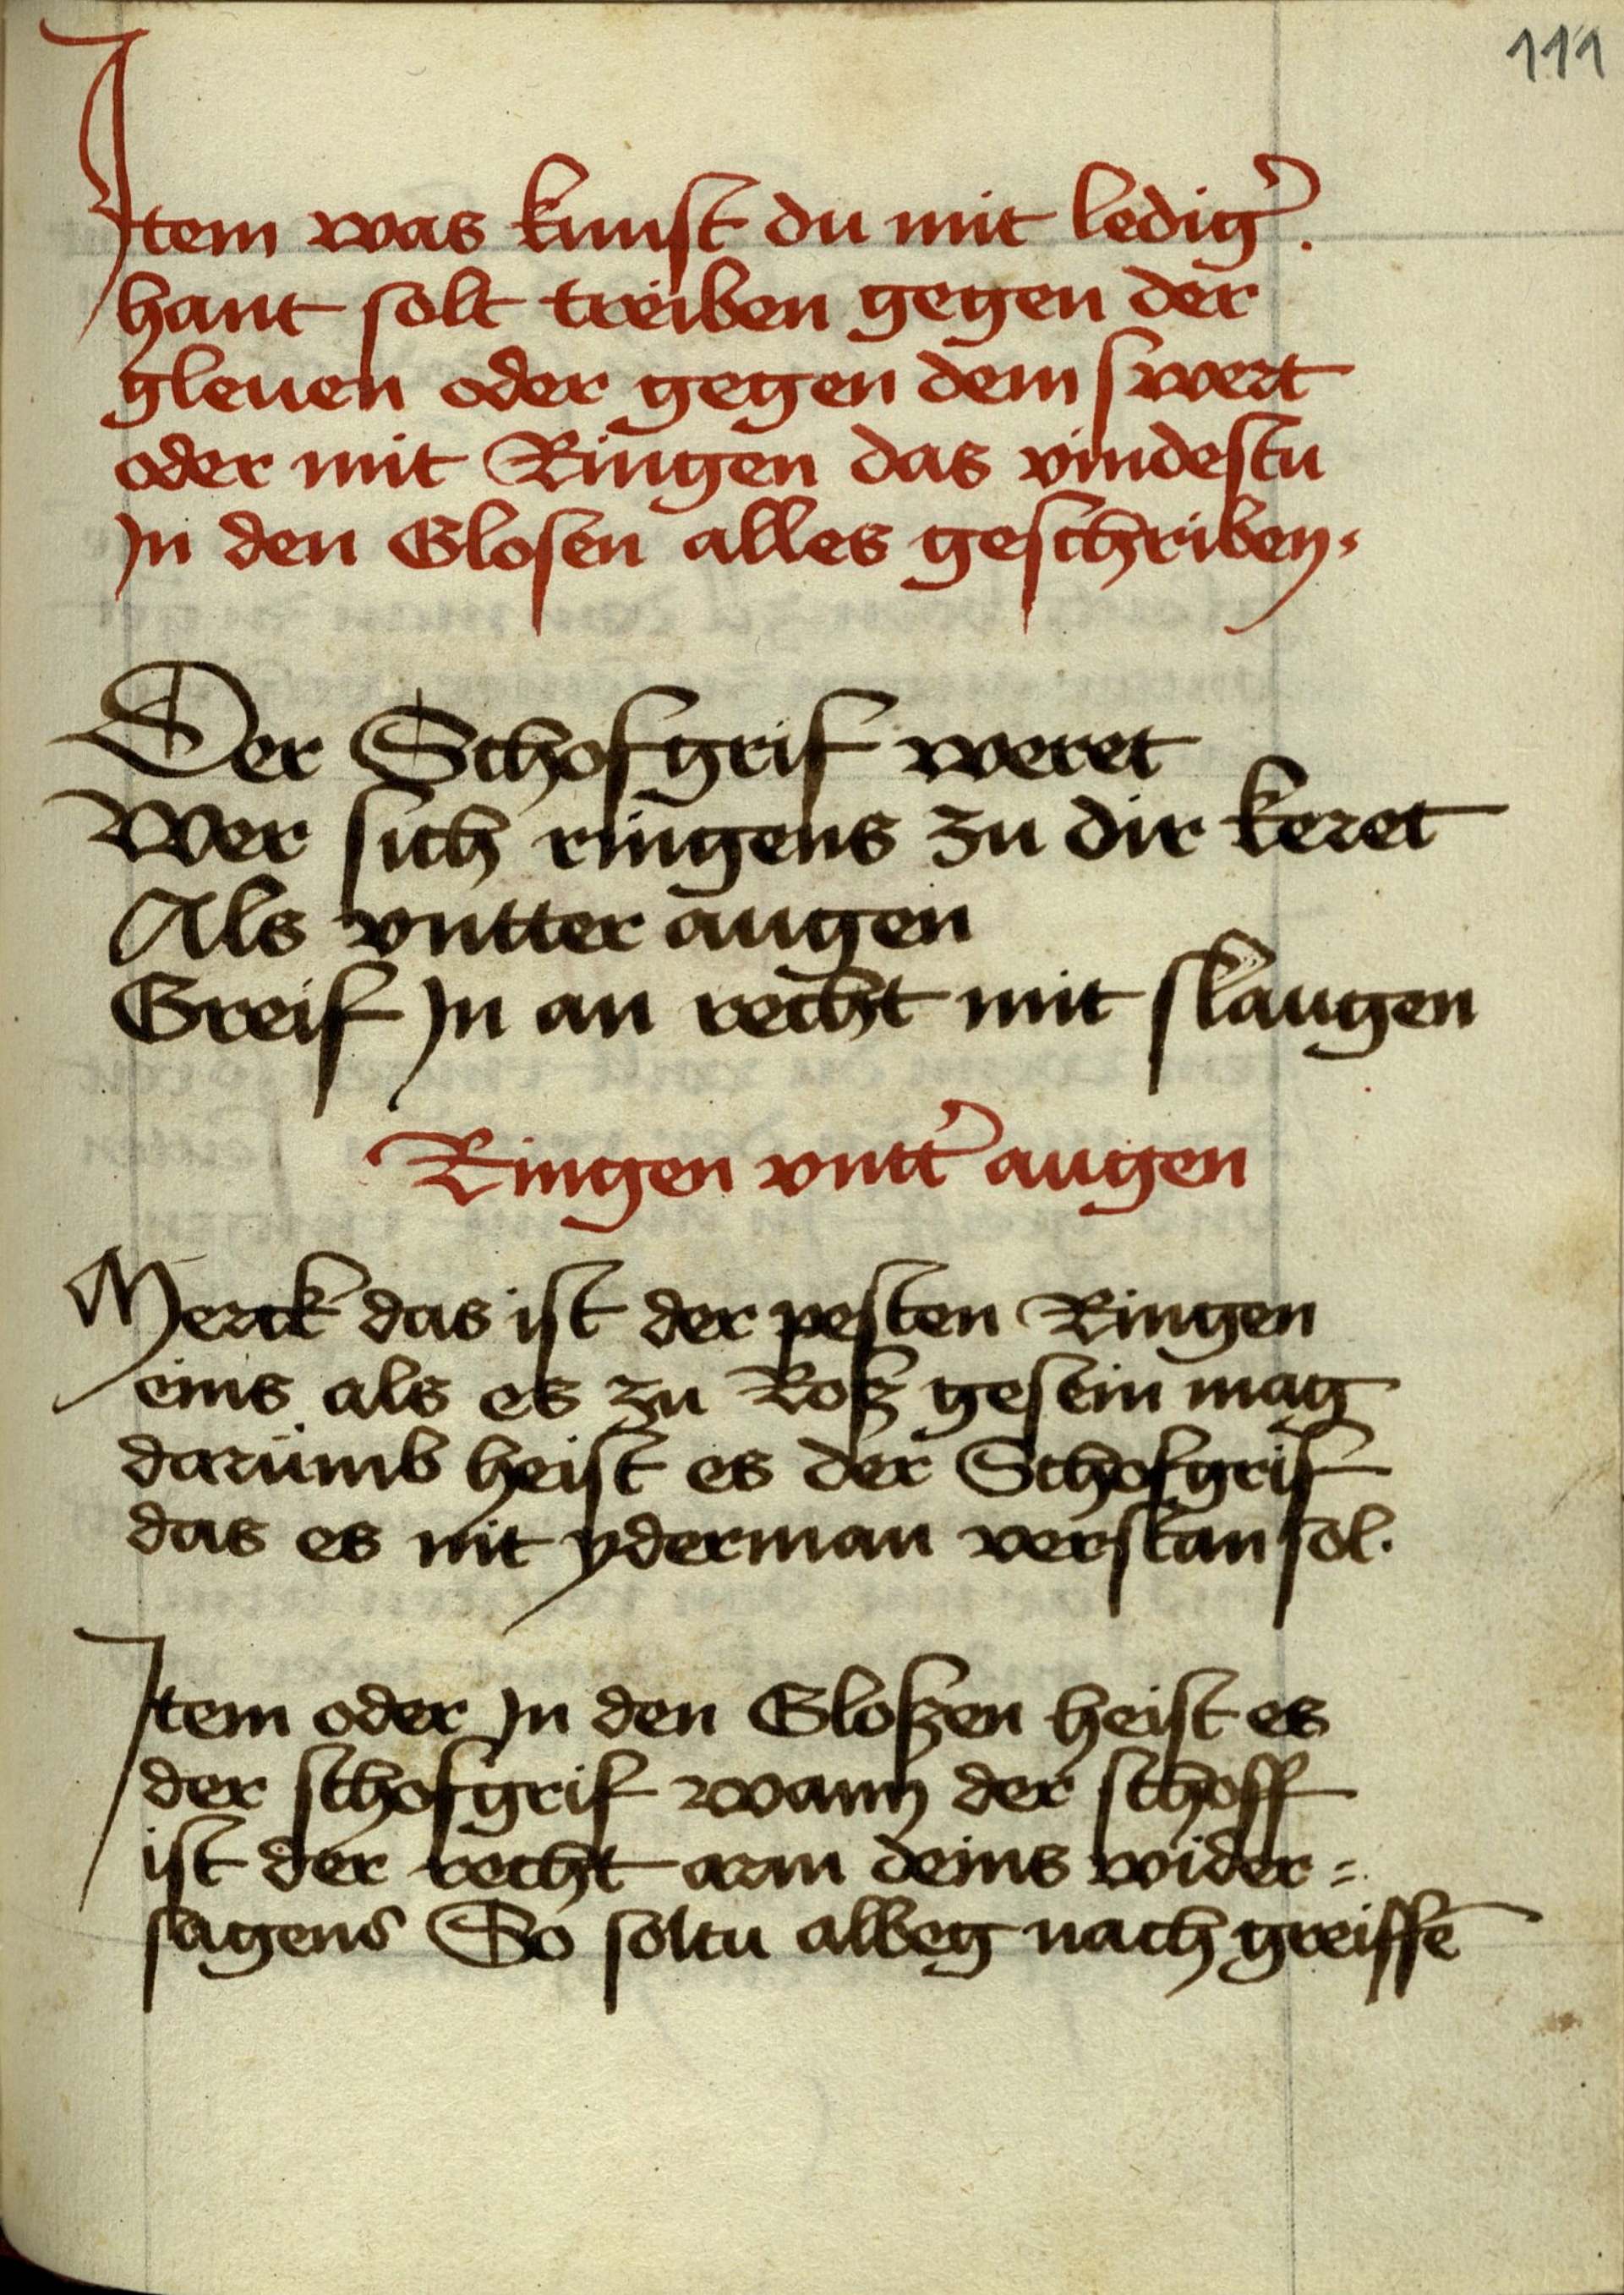 111
Item was kunst du mit ledig̉.
hant solt treiben gegen der
gleuen oder gegen dem swert
oder mit Ringen das vindestu
In den Glosen alles geschriben
Der Schofgrif weret
Wer sich ringens zu dir keret
Als vntter augen
Greif In an recht mit slaugen
Ringen vntt̉ augen
Merck das ist der pesten Ringen
eins als es zu Roß gesein mag
darümb heist es der Schofgrif
das es nit yderman verstan sol.
Item oder In den Gloßen heist es
der schofgrif wann der schoff
ist der recht arm deins wider=
sagens So soltu albeg nach greiffē